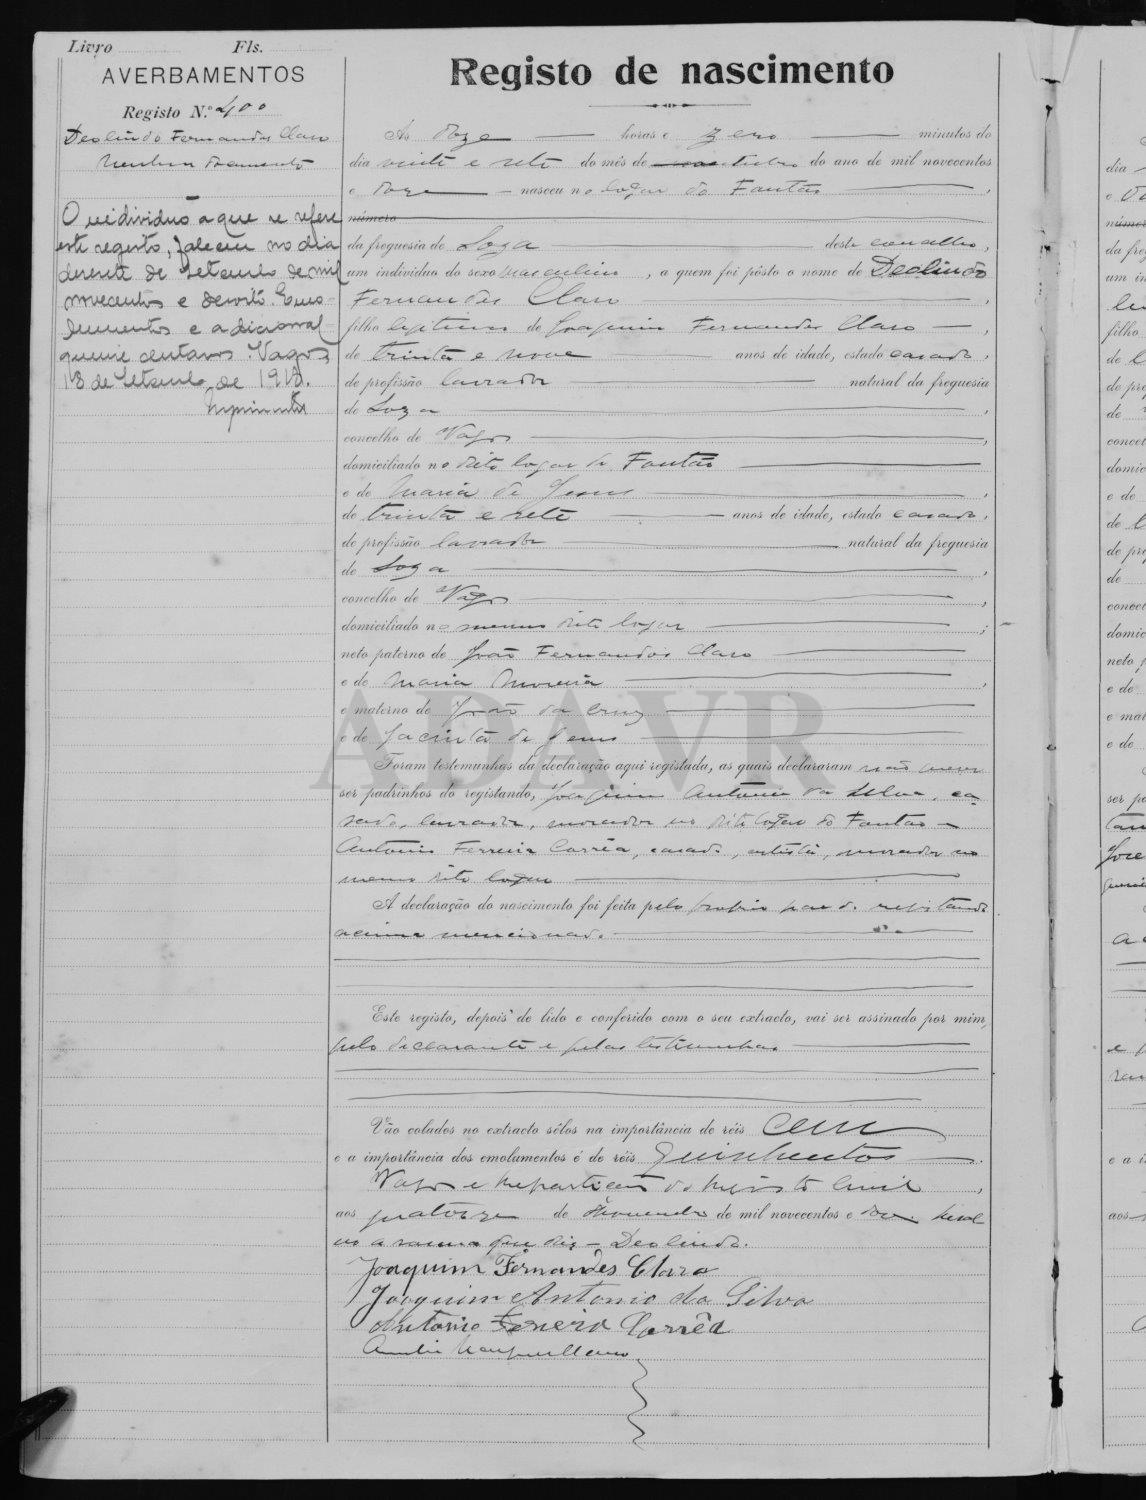 Livro Fls.
AVERBAMENTOS
Registo N.º 400
Deolindo Fernandes Claro
Nenhum documento
O individuo a que se refere
este registo, faleceu no dia
dezesete de Setembro de mil
novecentos e dezoito. Emo-
lumentos e adicional
quinze centavos. Vagos,
18 de Setembro de 1918.
Registo de nascimento
As doze horas e zero minutos do
dia vinte e sete do mês de outubro do ano de mil novecentos
e doze nasceu no logar do Fontão,
número
da freguesia de Soza deste concelho,
um individuo do sexo masculino, a quem foi pôsto o nome de Deolindo
Fernandes Claro,
filho legitimo de Joaquim Fernandes Claro,
de trinta e nove anos de idade, estado casado,
de profissão lavrador natural da freguesia
de Soza,
concelho de Vagos,
domiciliado no dito logar do Fontão
e de Maria de Jesus,
de trinta e sete anos de idade, estado casada,
de profissão lavradora natural da freguesia
de Soza,
concelho de Vagos,
domiciliado no mesmo dito logar;
neto paterno de João Fernandes Claro
e de Maria Moreira,
e materno de João da Cruz
e de Jacinta de Jesus
Foram testemunhas da declaração aqui registada, as quais declararam não querer
ser padrinhos do registando, Joaquim Antonio da Silva, ca-
sado, lavrador, morador no dito logar do Fontão e
Antonio Ferreira Corrêa, casado, artista, morador no
mesmo dito logar
A declaração do nascimento foi feita pelo proprio pae do registando
acima mencionado.
Este registo, depois de lido e conferido com o seu extracto, vai ser assinado por mim,
pelo declarante e pelas testemunhas
Vão colados no extracto sêlos na importância de réis cem
e a importância dos emolumentos é de réis Quinhentos.
Vagos e Repartição do Registo Civil,
aos quatorze de Novembro de mil novecentos e doze. Resal-
vo a rasura que diz - Deolindo.
Joaquim Fernandes Claro
Joaquim Antonio da Silva
Antonio Ferreira Corrêa
ADAVR